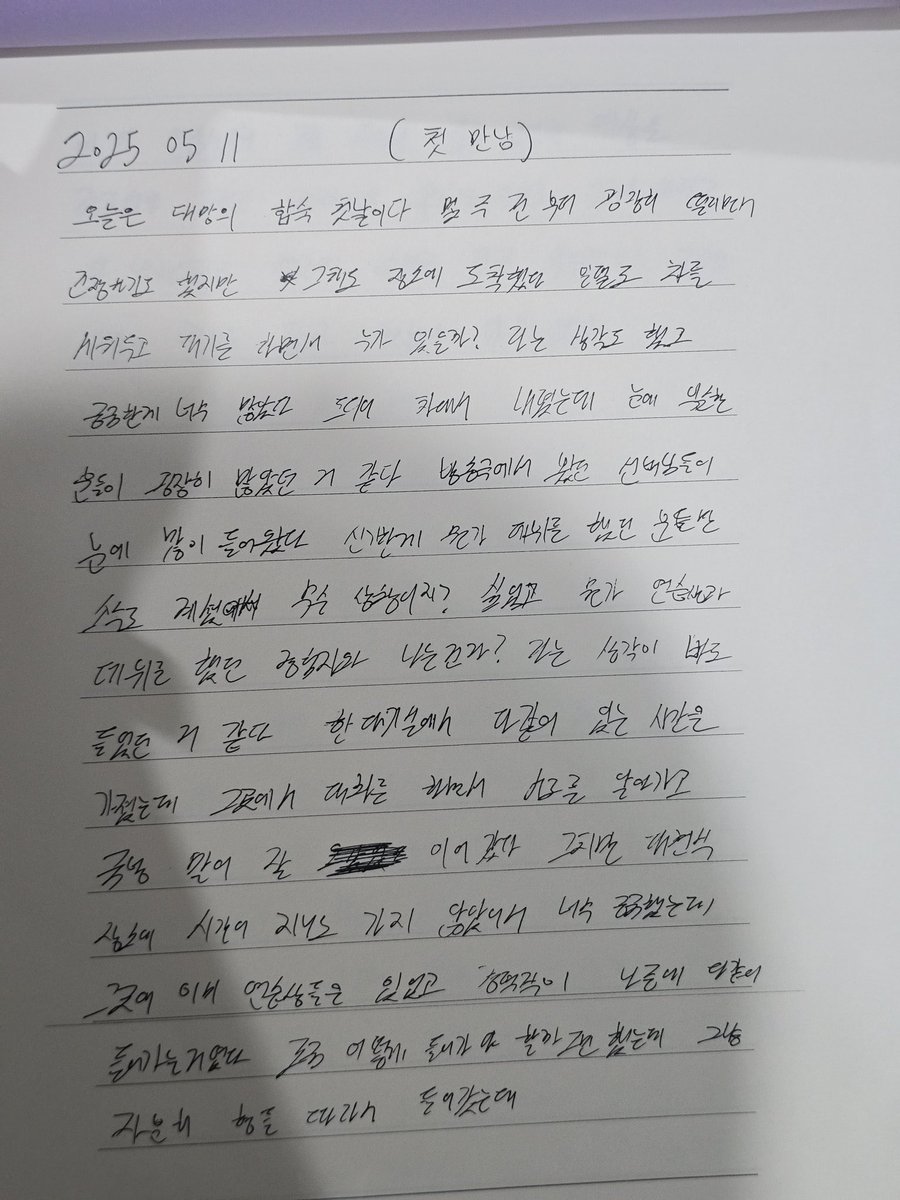 2025 05 11 (첫 만남)
오늘은 대망의 합숙 첫날이다 몇 주 전 부터 굉장히 떨리며
긴장하기도 했지만 그래도 장소에 도착했다 차를
세워두고 대기를 하면서 누가 있을까? 라는 생각도 했고
궁궁한게 너무 많았고 드디어 차에서 내렸는데 눈에 익숙한
분들이 굉장히 많았던 거 같다 방송국에서 봤던 선배님들이
눈에 많이 들어왔다 신기한게 뭔가 데뷔를 했던 분들만
무슨 상황이지? 싶었고 뭔가 연습생과
데뷔를 했던 나눈건가? 라는 생각이 바로
들었던 거 같다 한 대기실에서 다같이 있는 시간을
가졌는데 그곳에서 대화를 하며 서로를 알아가고
그냥 말이 잘 이어 갔다 그치만
장소에 시간이 지나도 가지 않았어서 너무 궁금했는데
그곳에 이미 연습생들은 있었고 나중에 다같이
들어가는거였다 어떻게 들어가야 할까 했는데 그냥
차분히 형들 따라서 들어갔는데